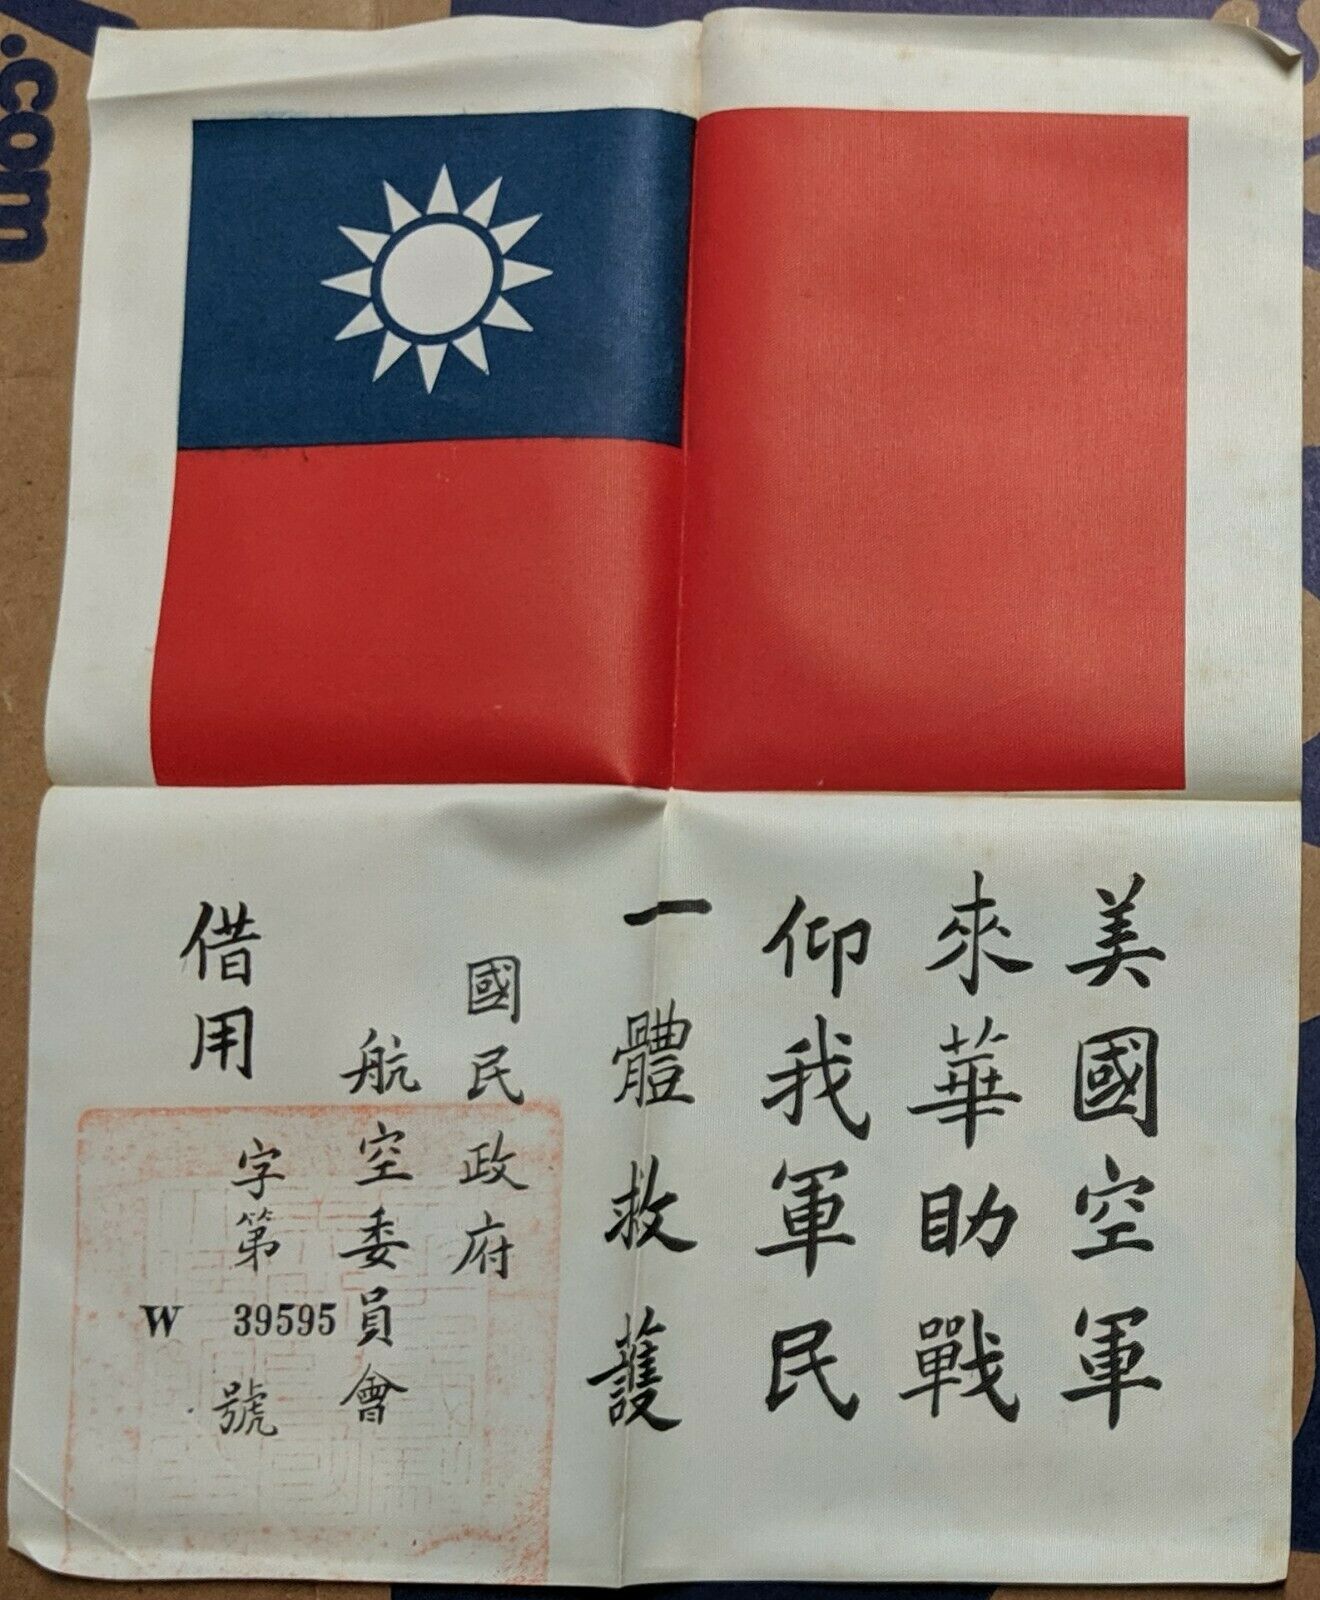 美國空軍
來華助戰
仰我軍民
一體救護
國民政府
航空委員會
借用
字第
W 39595
號
.com